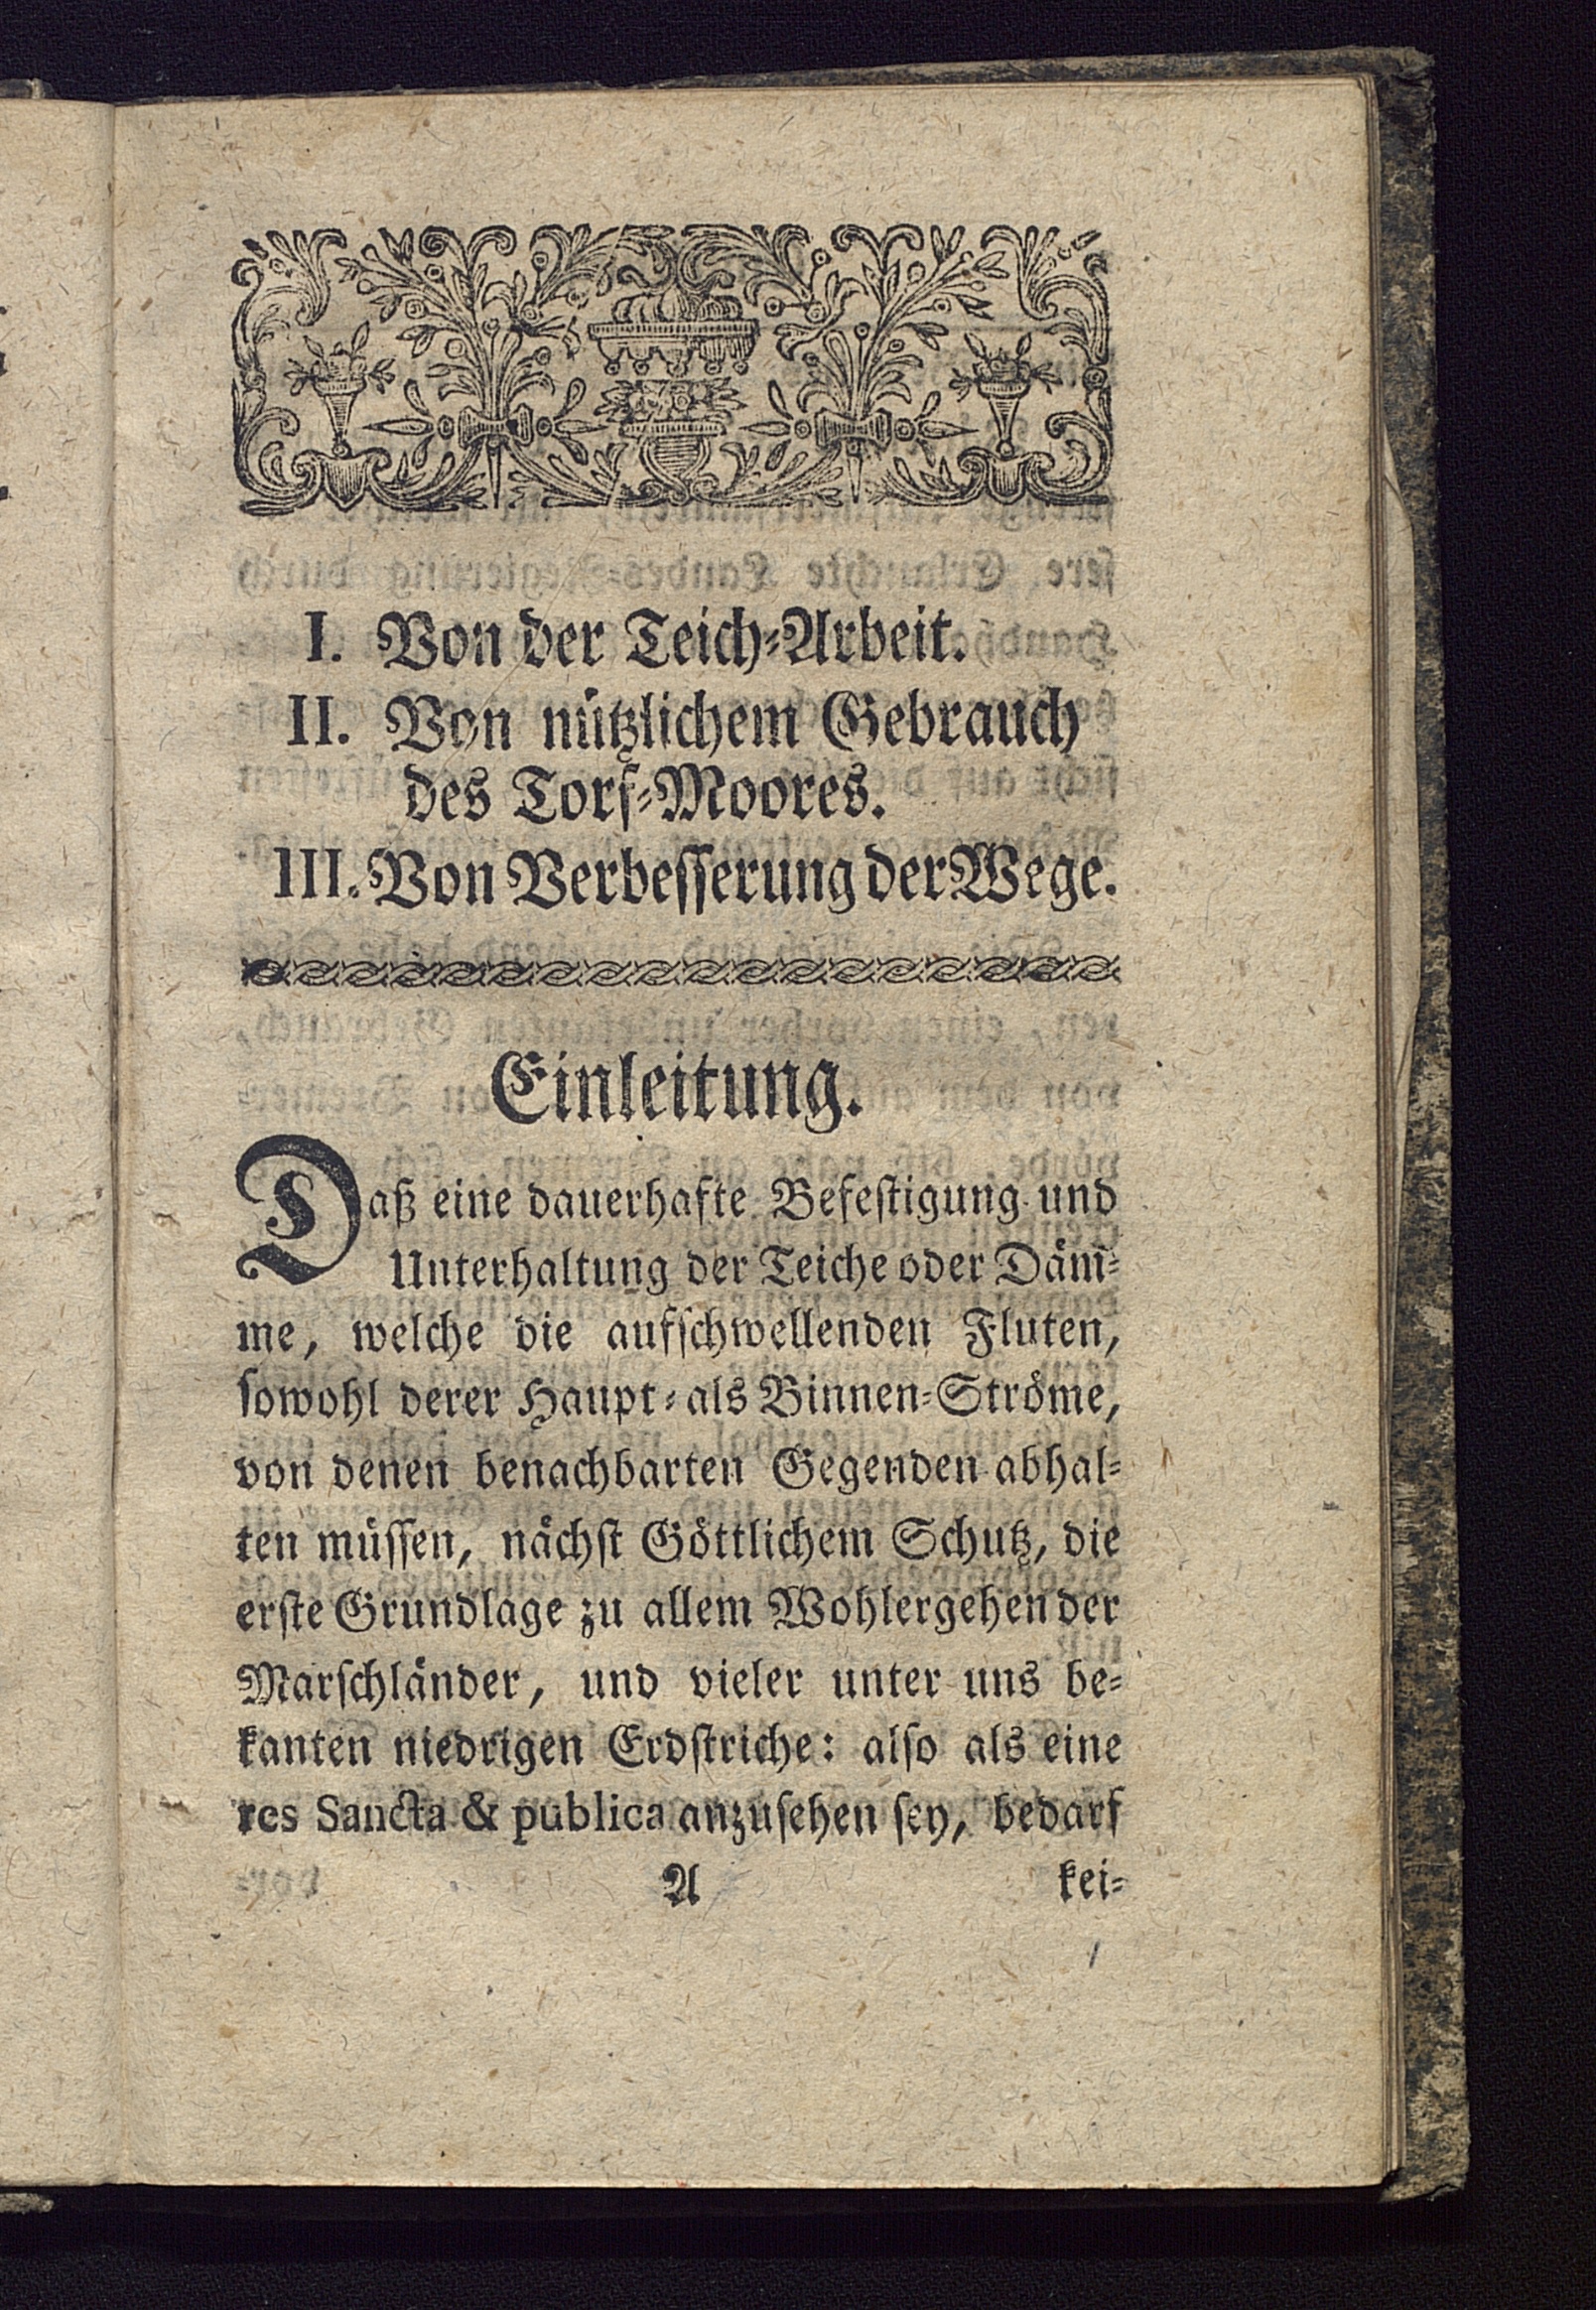 I. Von der Teich=Arbeit.
II. Von nützlichem Gebrauch
des Torf=Moores.
III. Von Verbeſſerung der Wege.
Einleitung.
Daß eine dauerhafte Befeſtigung und
Unterhaltung der Teiche oder Däm̄=
me, welche die aufſchwellenden Fluten,
ſowohl derer Haupt= als Binnen=Ströme,
von denen benachbarten Gegenden abhal=
ten müſſen, nächſt Göttlichem Schutz, die
erſte Grundlage zu allem Wohlergehen der
Marſchländer, und vieler unter uns be=
kanten niedrigen Erdſtriche: alſo als eine
res Sancta & publica anzuſehen ſey, bedarf
A kei=